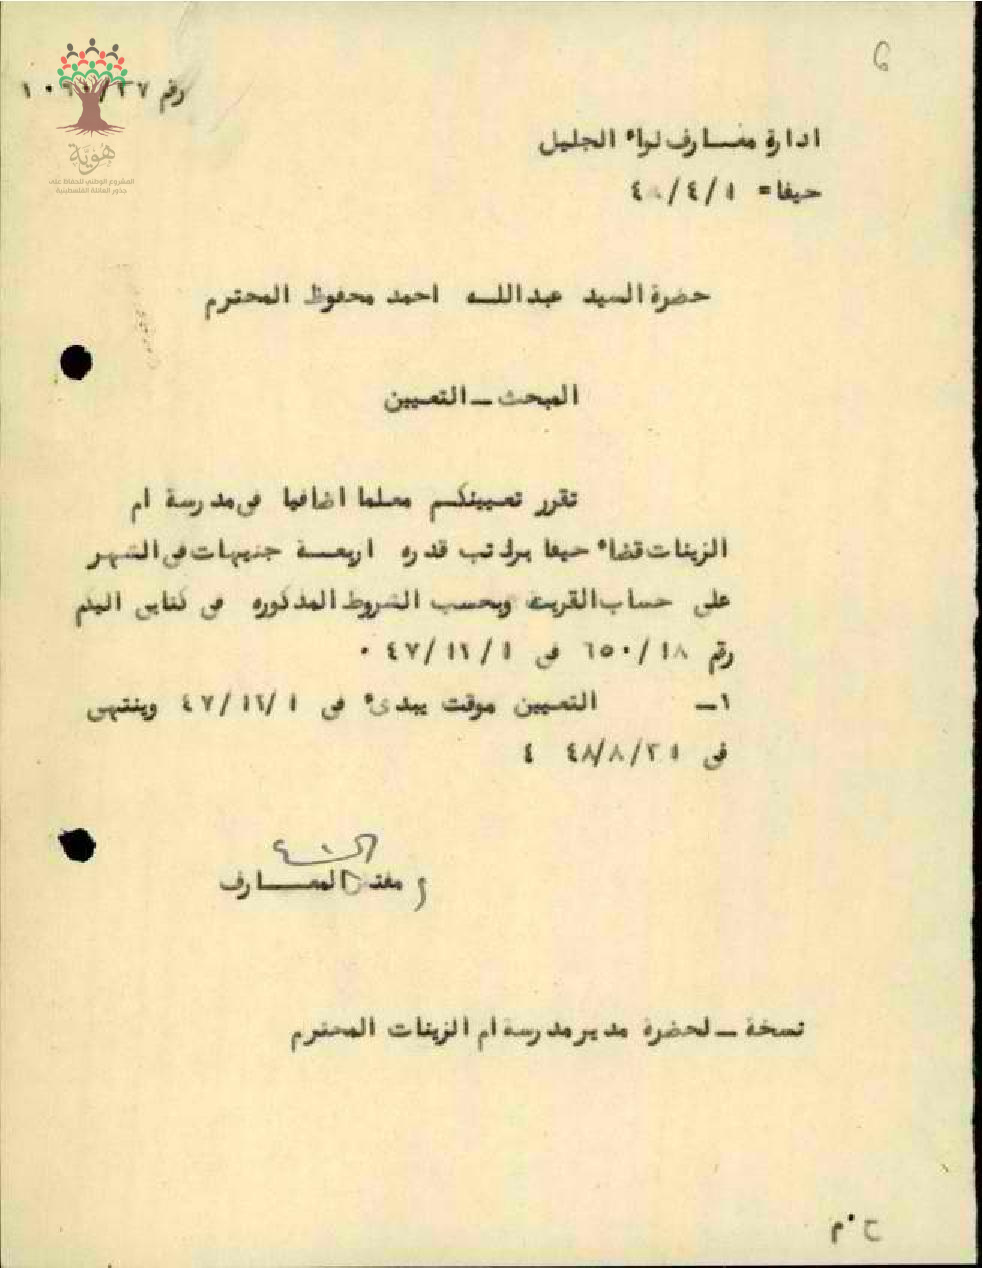 رقم ١٠٩٠/٣٧
هوية
المشروع الوطني للحفاظ على
جذور العائلة الفلسطينية
ادارة معارف لواء الجليل
حيفا = ٤٨/٤/١
حضرة السيد عبدالله احمد محفوظ المحترم
المبحث ـ التعيين
تقرر تعيينكم معلما اضافيا في مدرسة ام
الزينات قضاء حيفا براتب قدره اربعة جنيهات في الشهر
على حساب القرية وبحسب الشروط المذكوره في كتابي اليكم
رقم ٦٥٠/١٨ في ٤٧/١٢/١ ٠
١ـ التعيين موقت يبدىء في ٤٧/١٢/١ وينتهي
في ٤٨/٨/٣١
مفتش المعارف
نسخة ـ لحضرة مدير مدرسة ام الزينات المحترم
ح.م